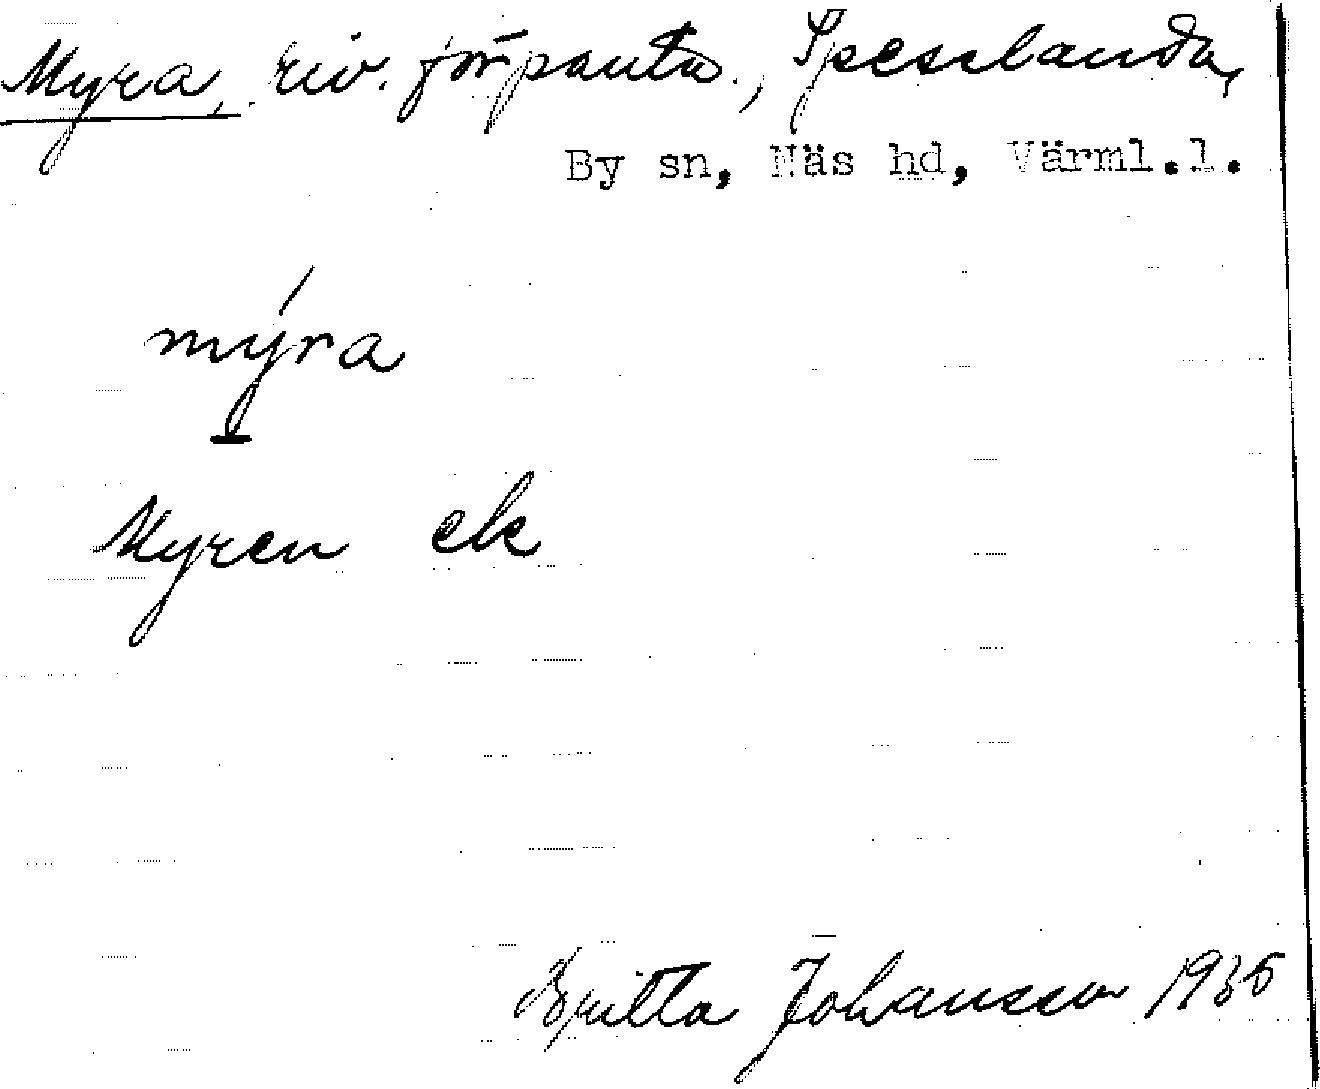 Myra, riv. förpantn., Spesslanda,
By sn, Näs hd, Värml.l.
mýra
Myren ek
Britta Johansson 1935